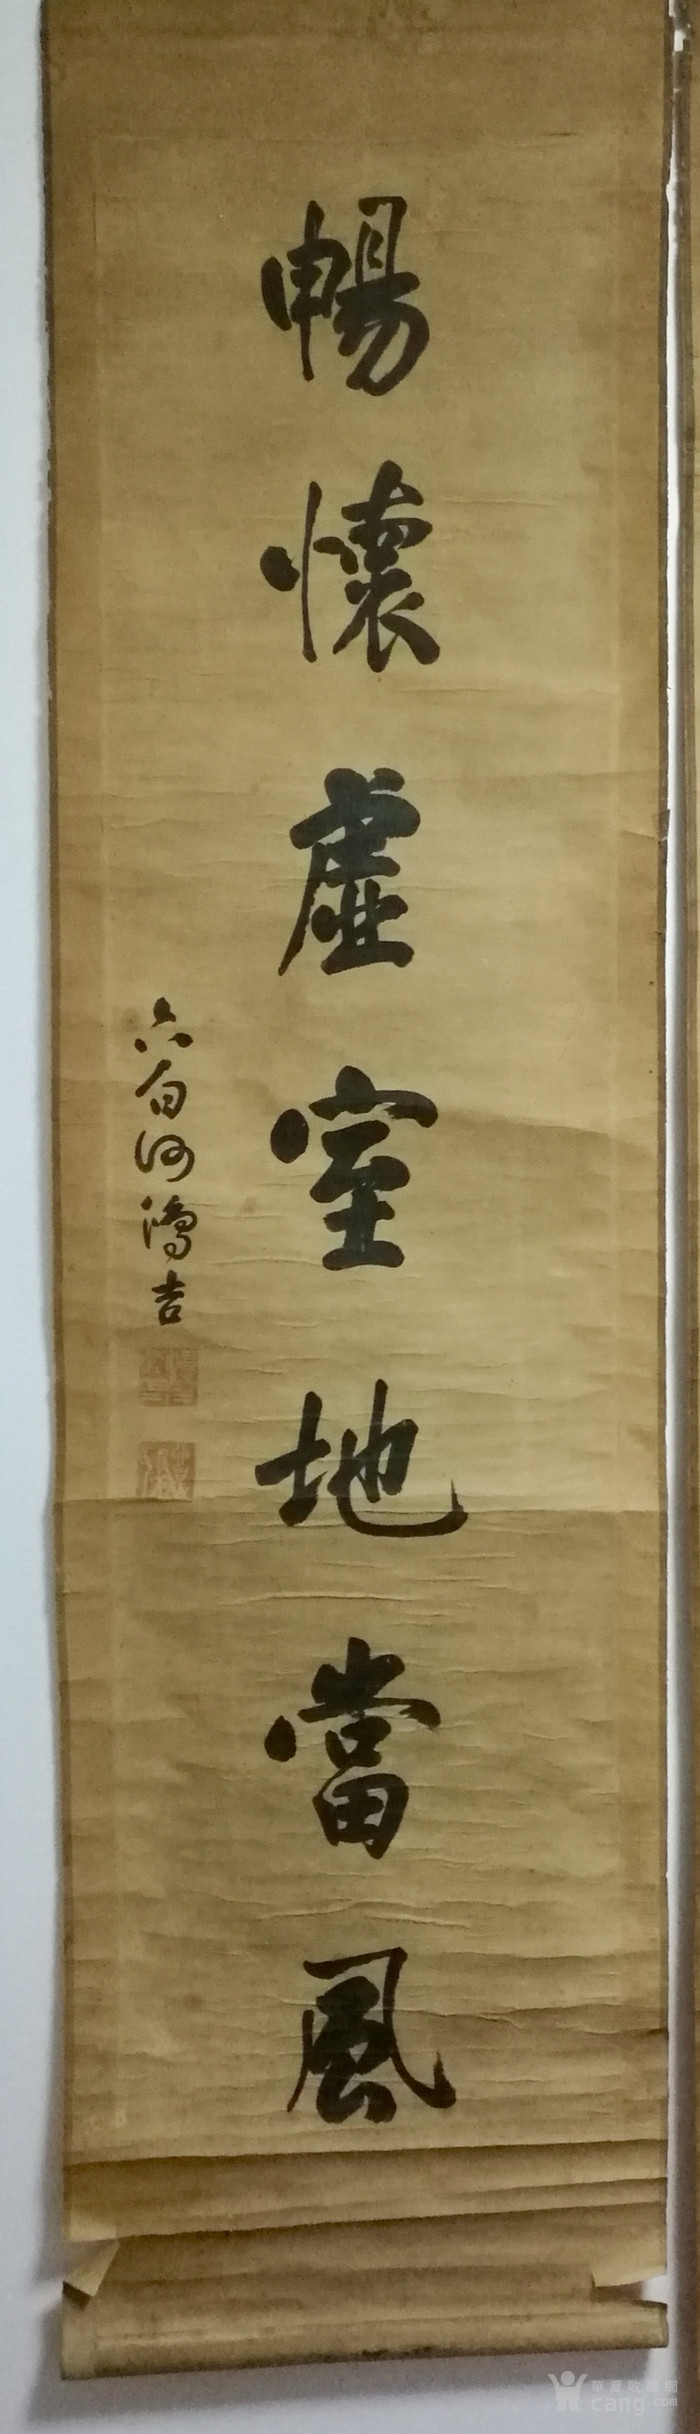 暢懷虛室地當風
六白何鴻吉
華夏收藏網
cang.com